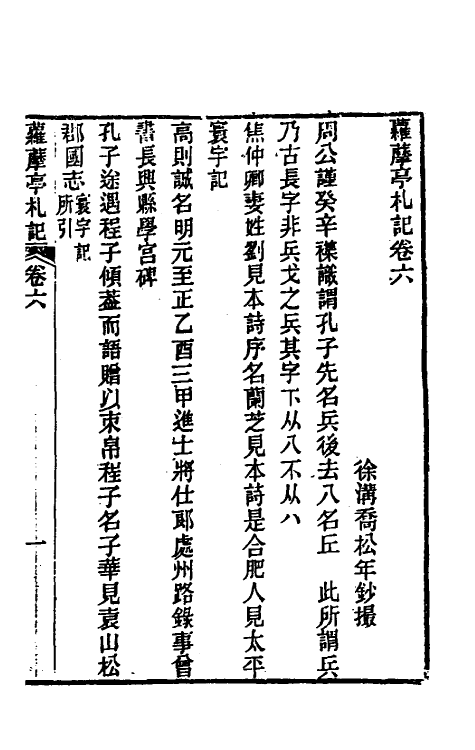 蘿藦亭札記卷六
徐溝喬松年鈔撮
周公謹癸辛襍識謂孔子先名兵後去八名丘　此所謂兵
乃古長字非兵戈之兵其字下从八不从八
焦仲卿妻姓劉見本詩序名蘭芝見本詩是合肥人見太平
寰宇記
高則誠名明元至正乙酉三甲進士將仕郎處州路錄事曾
書長興縣學宮碑
孔子途遇程子傾蓋而語贈以束帛程子名子華見袁山松
郡國志寰宇記所引
蘿藦亭札記　卷六　一